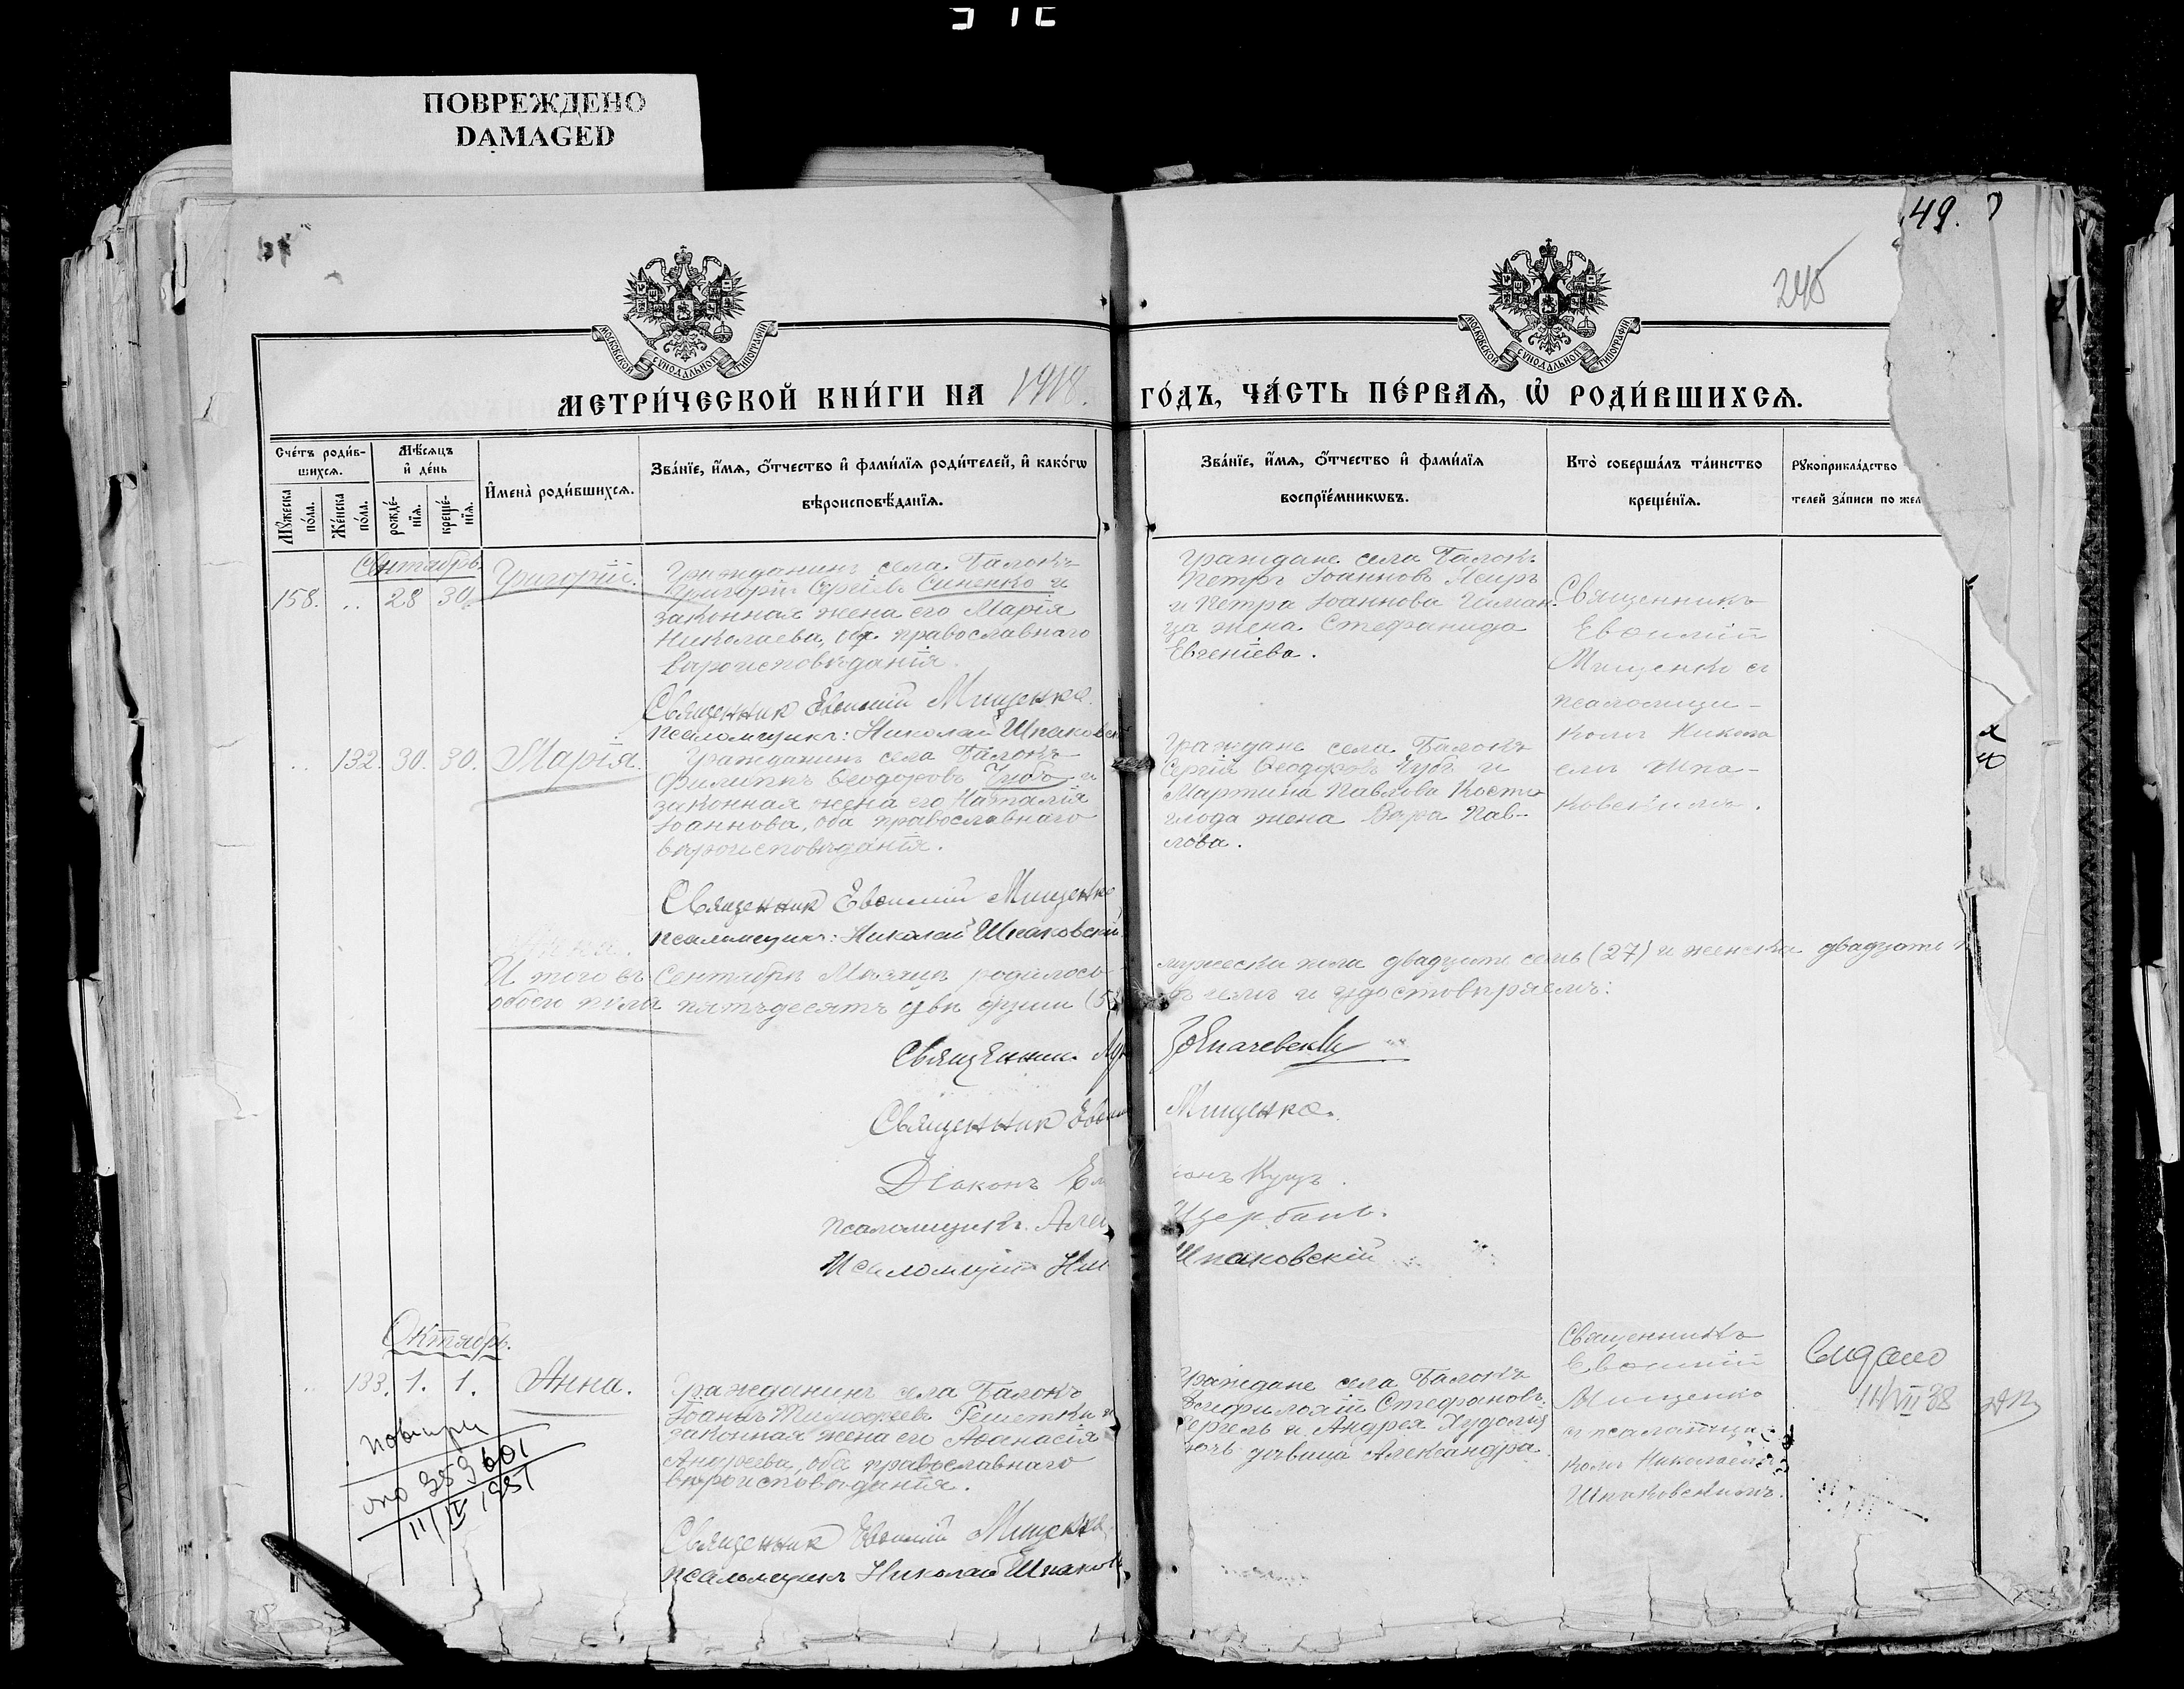 ПОВРЕЖДЕНО
DAMAGED
49.
245
МОСКОВСКОЙ СУНОДАЛЬНОЙ ТИПОГРАФІИ
МОСКОВСКОЙ СУНОДАЛЬНОЙ ТИПОГРАФІИ
МЕТРИ́ЧЕСКОЙ КНИ́ГИ НА 1918. ГО́ДЪ, ЧА́СТЬ ПЕ́РВАѦ, Ѡ҆ РОДИ́ВШИХСѦ.
Сче́тъ роди́в-
шихсѧ.
Мꙋ́жеска по́ла.
Же́нска по́ла.
Мѣ́сѧцъ
и҆ де́нь
рожде́-
нїѧ.
креще́-
нїѧ.
И҆мена̀ роди́вшихсѧ.
Зва́нїе, и҆́мѧ, ѻ҆́тчество и҆ фами́лїѧ роди́телей, и҆ како́гѡ
вѣроисповѣ́данїѧ.
Зва́нїе, и҆́мѧ, ѻ҆́тчество и҆ фами́лїѧ
воспрїе́мникѡвъ.
Кто̀ соверша́лъ та́инство
креще́нїѧ.
Рꙋкоприкла́дство
телей за́писи по жел
Сентябрь.
158. .. 28 30. Григорій.
Гражданинъ села Балокъ
Григорій Сергіевъ Синенко и
законная жена его Марія
Николаева, оба православнаго
вѣроисповѣданія.
Священник Евѳимій Мищенко.
Псаломщикъ: Николай Шпаковск
Граждане села Балокъ
Петръ Іоанновъ
и Петра Іоаннова
ца жена Стефанида
Евгеніева.
Священникъ
Евѳимій
Мищенко и
псаломщи-
комъ Никола
емъ Шпа-
ковскимъ.
.. 132. 30. 30. Марія.
Гражданинъ села Балокъ
Филиппъ Ѳеодоровъ Чубъ и
законная жена его Наталія
Іоаннова, оба православнаго
вѣроисповѣданія.
Священник Евѳимій Мищенко
Псаломщикъ: Николай Шпаковскій.
Граждане села Балокъ
Сергій Ѳеодоровъ Чубъ и
Мартина Павлова Косто
глода жена Вара Пав-
лова.
И того въ Сентябрѣ Мѣсяцѣ родилось мужеска пола двадцать семь (27) и женска двадцать
обоего пола пятьдесятъ двѣ души (5 и удостовѣряемъ:
Священник
Священник Евѳим Мищенко.
Діаконъ Ем іонъ Куцъ.
Псаломщикъ. Але Щербань.
Псаломщик Ни Шпаковскій
Октябрь.
.. 133. 1. 1. Анна.
Гражданинъ села Балокъ
Іоаннъ Тимофеевъ Решетка и
законная жена его Аѳанасія
Андреева, оба православнаго
вѣроисповѣданія.
Священник Евѳимій Мищенко
Псаломщикъ Николай Шпаков
Граждане села Балокъ
Стефановъ
и Андрея Худолія
дочь дѣвица Александра.
Священникъ
Евѳимій
Мищенко
и псаломщи-
комъ Николаемъ
Шпаковскимъ.
11/VII 38
383601
11/IV 1951